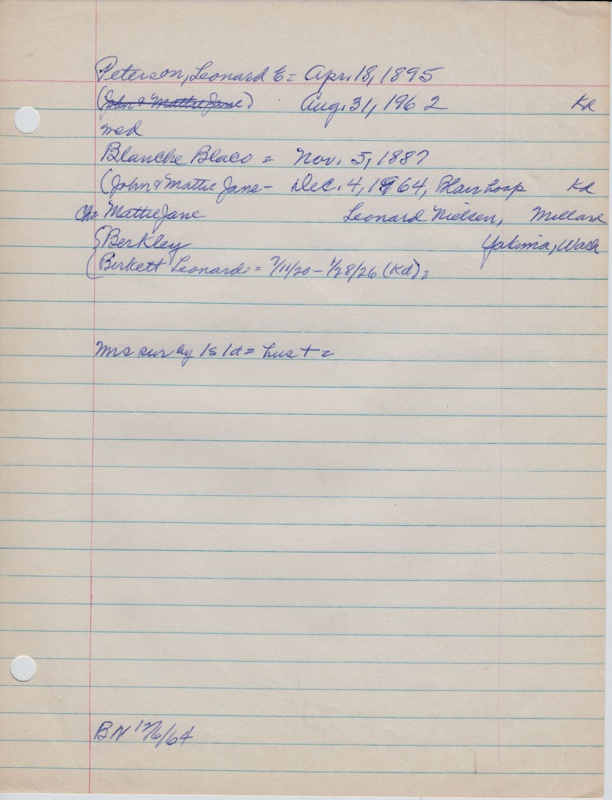 Peterson, Leonard E = Apr. 18, 1895
(John & Mattie Jane) Aug. 31, 1962 Kd
wed
Blanche Blaco = Nov. 5, 1887
(John & Mattie Jane - Dec. 4, 1964, Blair hosp Kd
Ch = Mattie Jane Leonard Nielsen, Millard
{Berkley Yakima, Wash
{Berkett Leonard = 7/11/20 - 1/28/26 (Kd) =
Mrs sur by 1s 1d = hus + =
BN 12/6/64